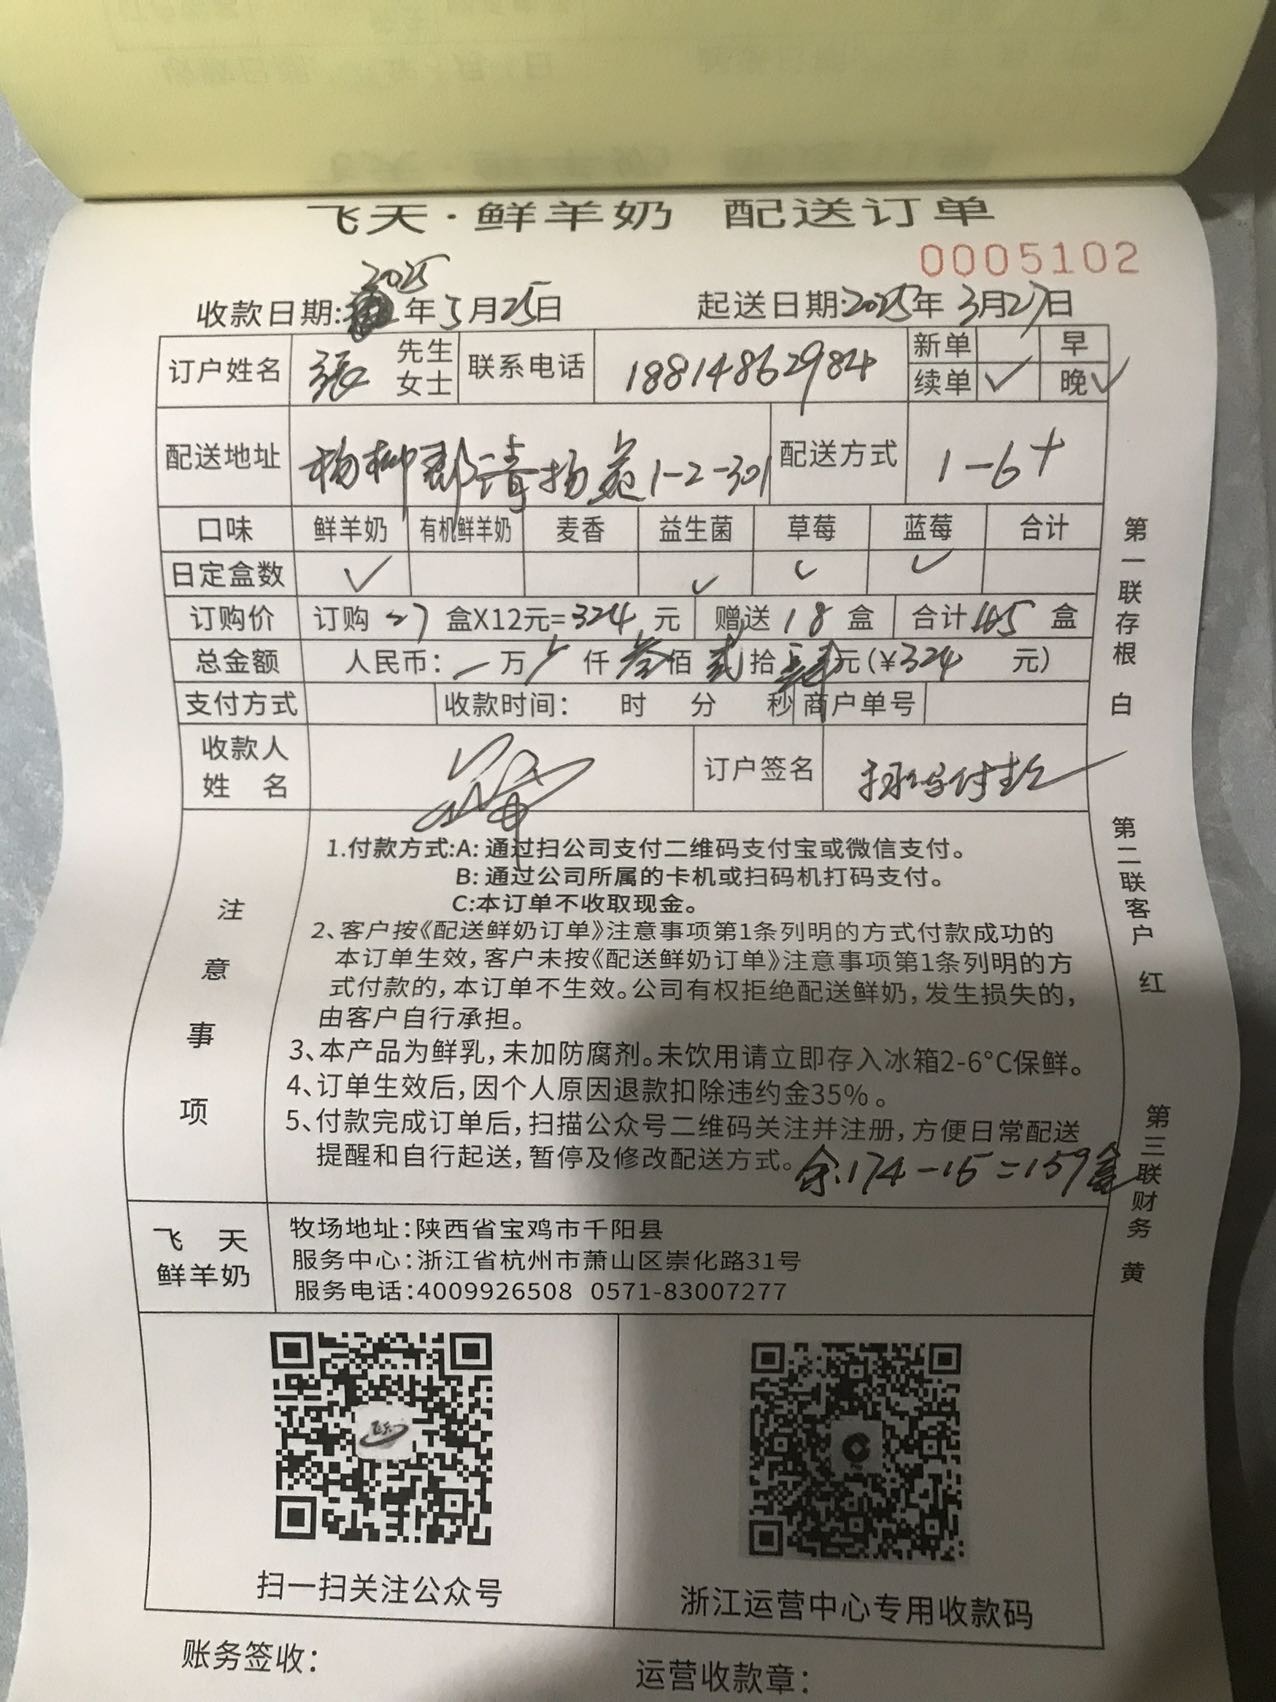 飞天·鲜羊奶 配送订单
0005102
收款日期: 2025年3月25日 起送日期:2025年3月27日
订户姓名 張 先生 女士 联系电话 18814862984 新单 早
续单 ✓ 晚 ✓
配送地址 杨柳郡清扬苑1-2-301 配送方式 1-6+
口味 鲜羊奶 有机鲜羊奶 麦香 益生菌 草莓 蓝莓 合计
日定盒数 ✓ ✓ ✓ ✓
订购价 订购 27 盒X12元=324 元 赠送 18 盒 合计 45 盒
总金额 人民币: 万 仟 叁佰 贰拾 肆元(¥324 元)
支付方式 收款时间: 时 分 秒 商户单号
收款人
姓 名
订户签名 扫码付款
注意事项
1.付款方式:A:通过扫公司支付二维码支付宝或微信支付。
B:通过公司所属的卡机或扫码机打码支付。
C:本订单不收取现金。
2、客户按《配送鲜奶订单》注意事项第1条列明的方式付款成功的
本订单生效,客户未按《配送鲜奶订单》注意事项第1条列明的方
式付款的,本订单不生效。公司有权拒绝配送鲜奶,发生损失的,
由客户自行承担。
3、本产品为鲜乳,未加防腐剂。未饮用请立即存入冰箱2-6°C保鲜。
4、订单生效后,因个人原因退款扣除违约金35%。
5、付款完成订单后,扫描公众号二维码关注并注册,方便日常配送
提醒和自行起送,暂停及修改配送方式。
余174-15=159盒
飞 天
鲜羊奶
牧场地址:陕西省宝鸡市千阳县
服务中心:浙江省杭州市萧山区崇化路31号
服务电话:4009926508 0571-83007277
扫一扫关注公众号
浙江运营中心专用收款码
账务签收:
运营收款章:
第一联存根 白
第二联客户 红
第三联财务 黄